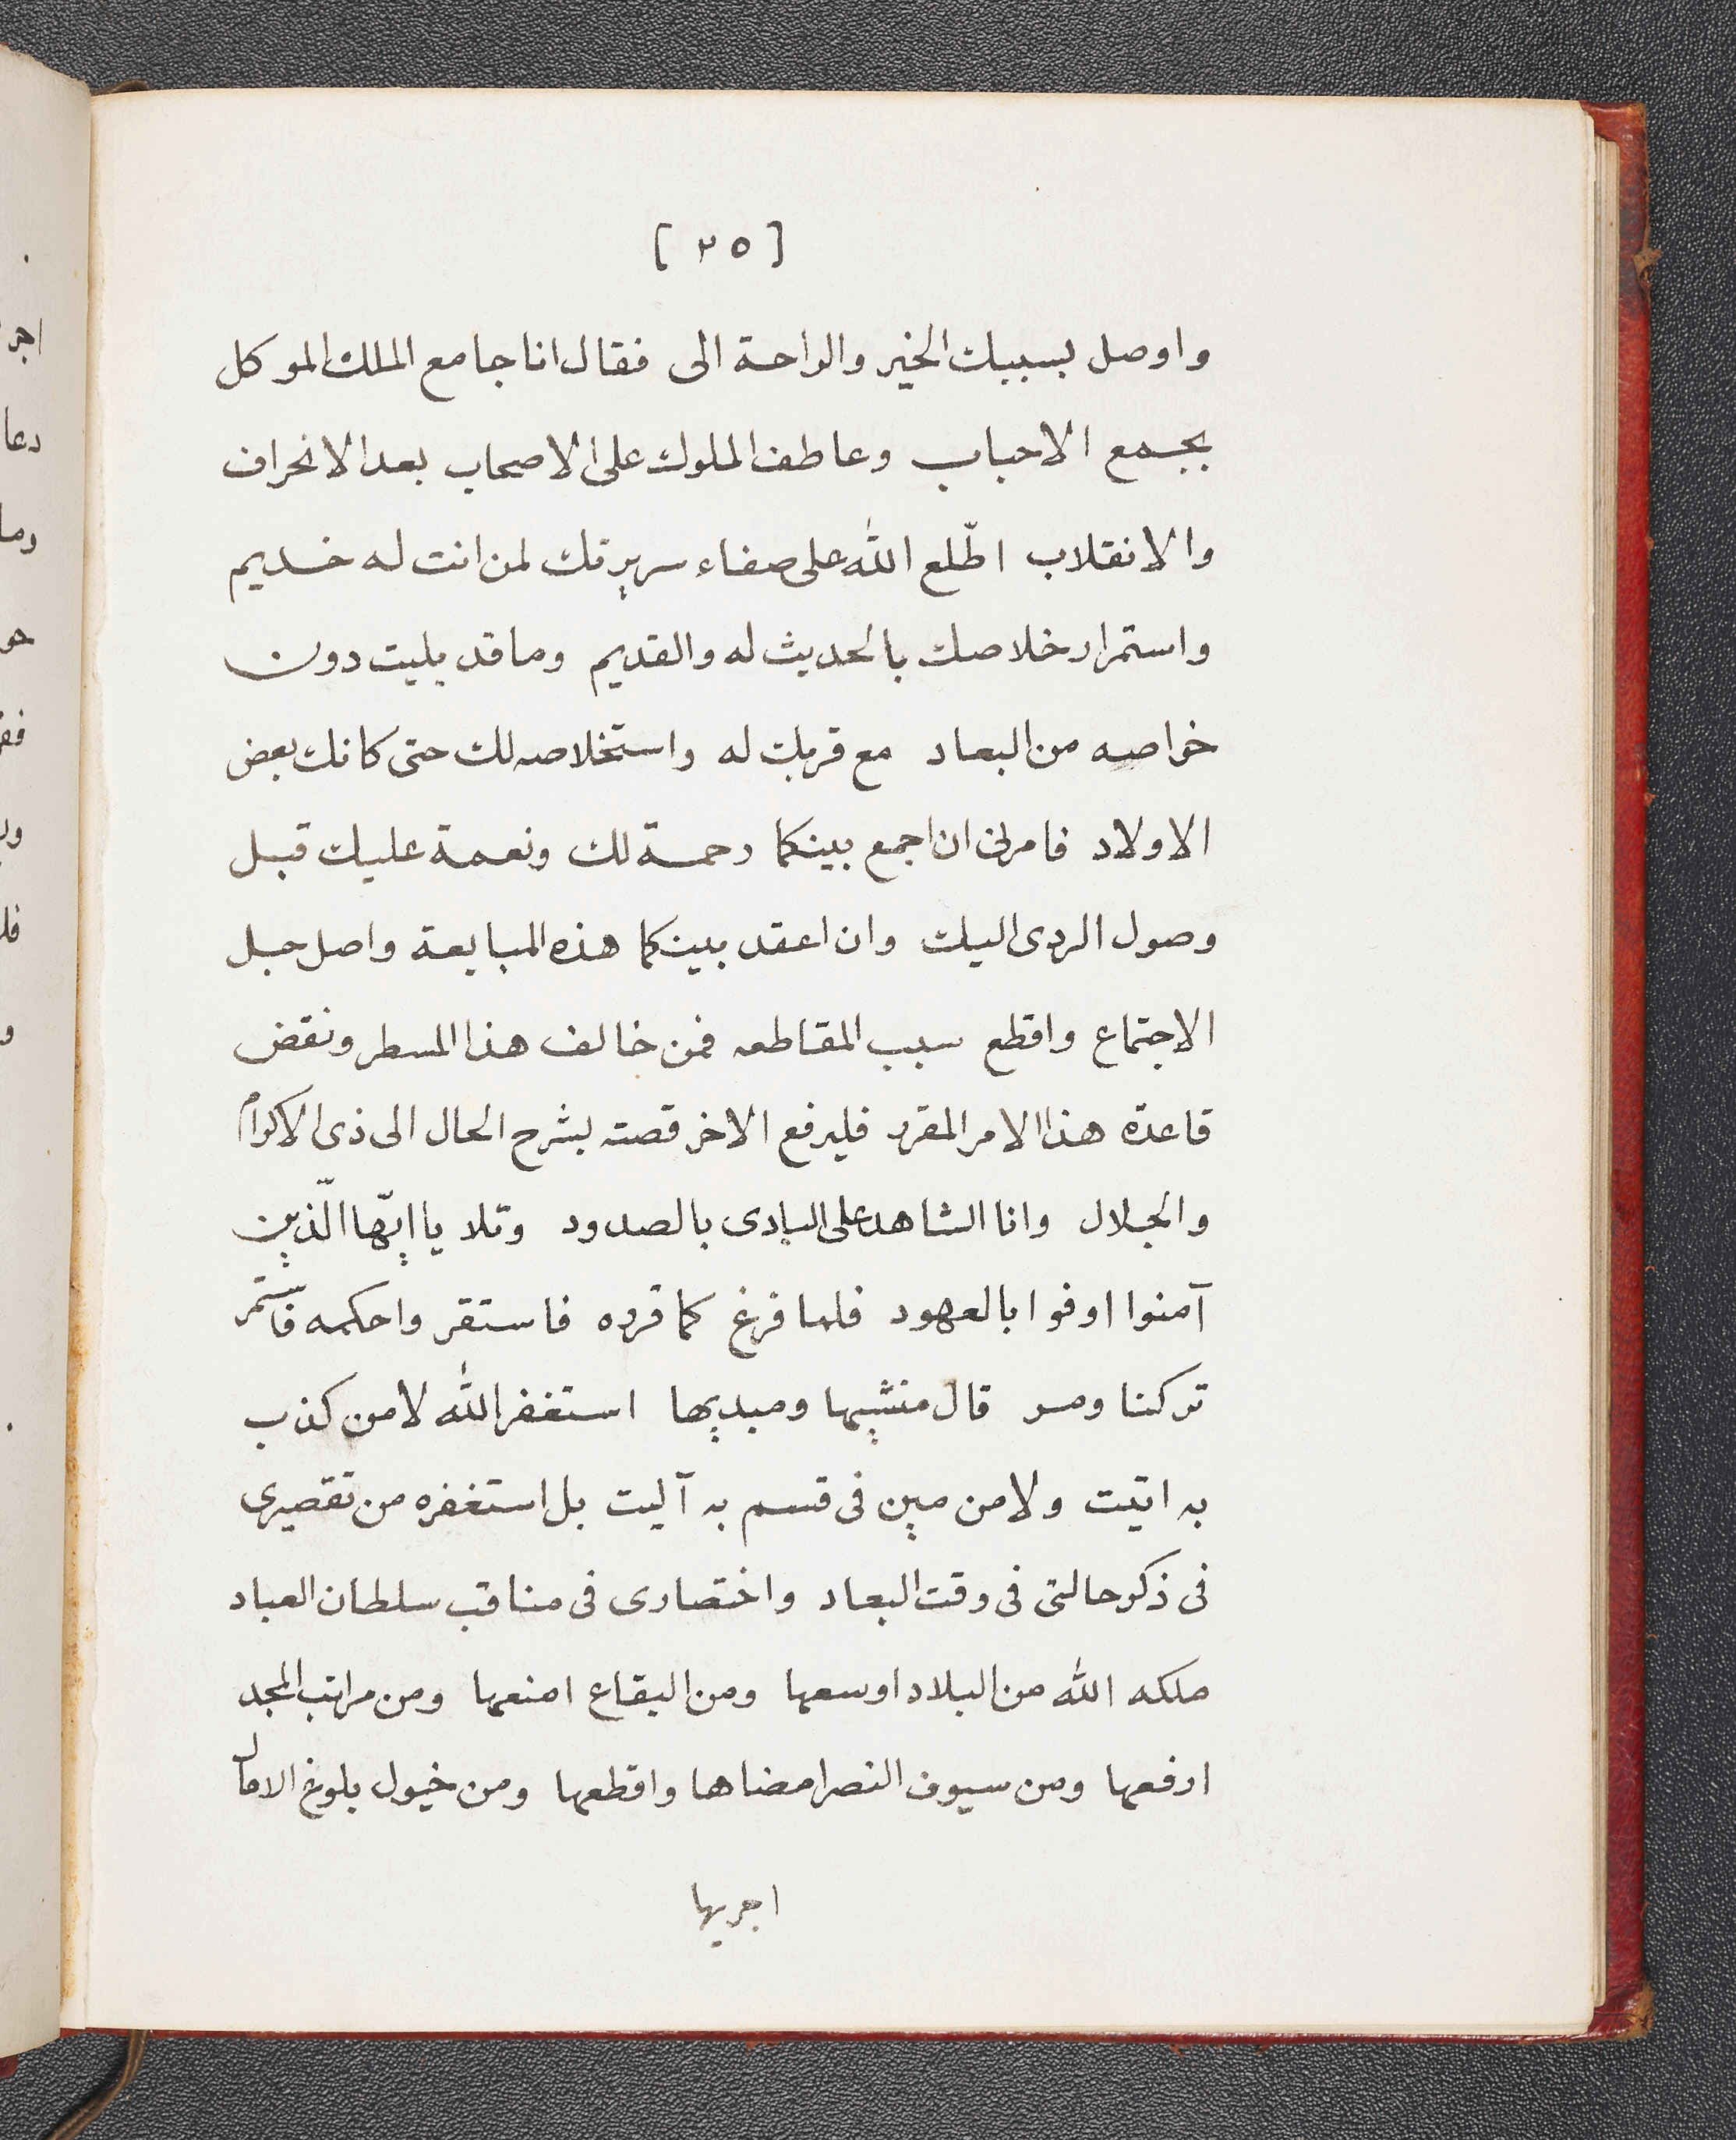 [ ٢٥ ]
واوصل بسببك الخير والراحة الى فقال انا جامع الملك الموكل
بجمع الاحباب وعاطف الملوك على الاصحاب بعد الانحراف
والانقلاب اطّلع الله على صفاء سريرتك لمن انت له خديم
واستمرار خلاصك بالحديث له والقديم وما قد بليت دون
خواصه من البعاد مع قربك له واستخلاصه لك حتى كانك بعض
الاولاد فامرنى ان اجمع بينكما رحمة لك ونعمة عليك قبل
وصول الردى اليك وان اعقد بينكما هذه المبايعة واصل حبل
الاجتماع واقطع سبب المقاطعه فمن خالف هذا المسطر ونقض
قاعدة هذا الامر المقرر فليرفع الاخر قصته بشرح الحال الى ذى الاكرام
والجلال وانا الشاهد على البادى بالصدود وتلا يا ايّها الّذين
آمنوا اوفوا بالعهود فلما فرغ كما قرره فاستقر واحكمه فاستمر
تركنا ومر قال منشيها ومبديها استغفر الله لا من كذب
به اتيت ولا من مين فى قسم به آليت بل استغفره من تقصيرى
فى ذكر حالتى فى وقت البعاد واختصارى فى مناقب سلطان العباد
ملكه الله من البلاد اوسعها ومن البقاع امنعها ومن مراتب المجد
ارفعها ومن سيوف النصر امضاها واقطعها ومن خيول بلوغ الامال
اجريها